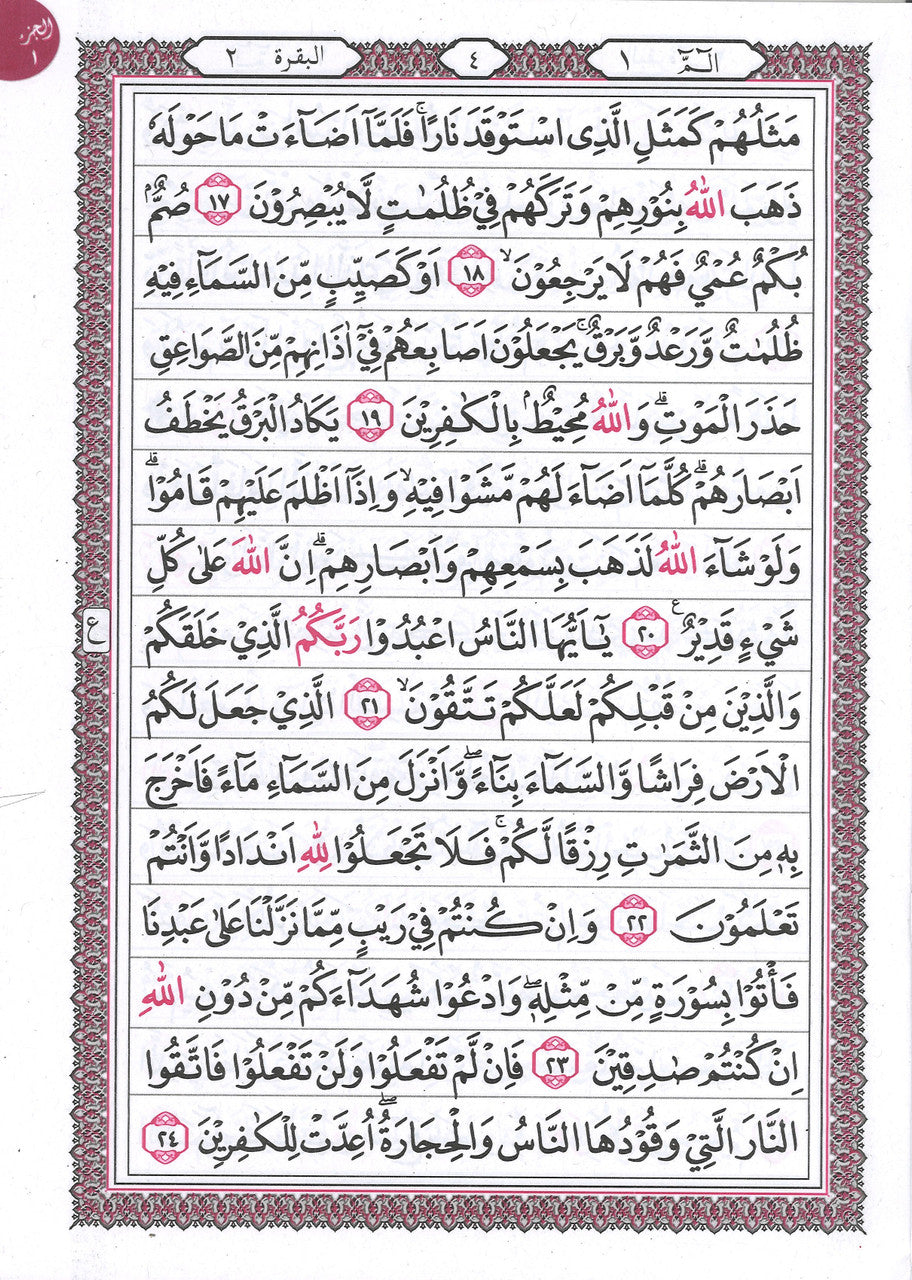 الجزء ١
الٓمّٓ ١
٤
البقرة ٢
مَثَلُهُمْ كَمَثَلِ الَّذِی اسْتَوْقَدَ نَارًا ۚ فَلَمَّاۤ اَضَآءَتْ مَا حَوْلَهٗ
ذَهَبَ اللّٰهُ بِنُوْرِهِمْ وَتَرَكَهُمْ فِيْ ظُلُمٰتٍ لَّا يُبْصِرُوْنَ ﴿١٧﴾ صُمٌّۢ
بُكْمٌ عُمْيٌ فَهُمْ لَا يَرْجِعُوْنَ ۙ ﴿١٨﴾ اَوْ كَصَيِّبٍ مِّنَ السَّمَآءِ فِيْهِ
ظُلُمٰتٌ وَّرَعْدٌ وَّبَرْقٌ ۚ يَجْعَلُوْنَ اَصَابِعَهُمْ فِيْۤ اٰذَانِهِمْ مِّنَ الصَّوَاعِقِ
حَذَرَ الْمَوْتِ ؕ وَاللّٰهُ مُحِيْطٌۢ بِالْكٰفِرِيْنَ ﴿١٩﴾ يَكَادُ الْبَرْقُ يَخْطَفُ
اَبْصَارَهُمْ ؕ كُلَّمَاۤ اَضَآءَ لَهُمْ مَّشَوْا فِيْهِ ۙ وَاِذَاۤ اَظْلَمَ عَلَيْهِمْ قَامُوْا ؕ
وَلَوْ شَآءَ اللّٰهُ لَذَهَبَ بِسَمْعِهِمْ وَاَبْصَارِهِمْ ؕ اِنَّ اللّٰهَ عَلٰى كُلِّ
شَيْءٍ قَدِيْرٌ ﴿٢٠﴾ ع يٰۤاَيُّهَا النَّاسُ اعْبُدُوْا رَبَّكُمُ الَّذِيْ خَلَقَكُمْ
ع
وَالَّذِيْنَ مِنْ قَبْلِكُمْ لَعَلَّكُمْ تَتَّقُوْنَ ۙ ﴿٢١﴾ الَّذِيْ جَعَلَ لَكُمُ
الْاَرْضَ فِرَاشًا وَّالسَّمَآءَ بِنَآءً ۪ وَّاَنْزَلَ مِنَ السَّمَآءِ مَآءً فَاَخْرَجَ
بِهٖ مِنَ الثَّمَرٰتِ رِزْقًا لَّكُمْ ۚ فَلَا تَجْعَلُوْا لِلّٰهِ اَنْدَادًا وَّاَنْتُمْ
تَعْلَمُوْنَ ﴿٢٢﴾ وَاِنْ كُنْتُمْ فِيْ رَيْبٍ مِّمَّا نَزَّلْنَا عَلٰى عَبْدِنَا
فَأْتُوْا بِسُوْرَةٍ مِّنْ مِّثْلِهٖ ۪ وَادْعُوْا شُهَدَآءَكُمْ مِّنْ دُوْنِ اللّٰهِ
اِنْ كُنْتُمْ صٰدِقِيْنَ ﴿٢٣﴾ فَاِنْ لَّمْ تَفْعَلُوْا وَلَنْ تَفْعَلُوْا فَاتَّقُوا
النَّارَ الَّتِيْ وَقُوْدُهَا النَّاسُ وَالْحِجَارَةُ ۖ اُعِدَّتْ لِلْكٰفِرِيْنَ ﴿٢٤﴾